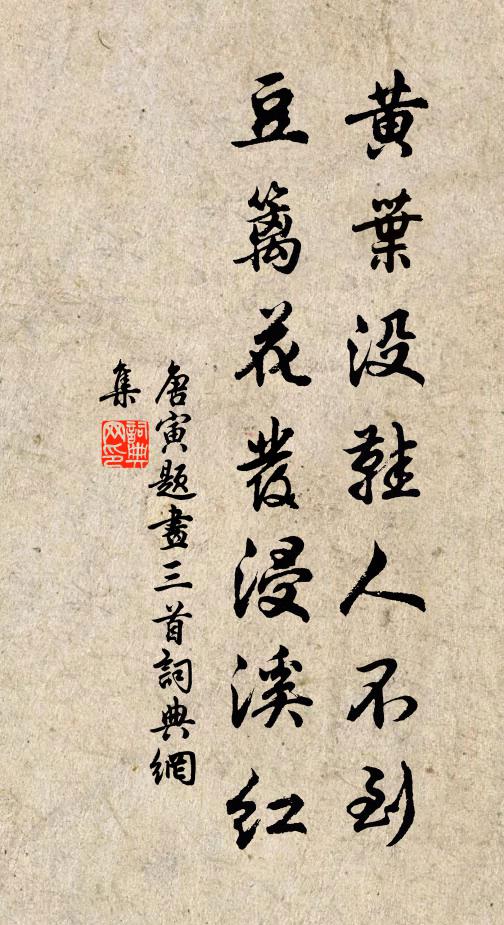 黃葉没鞋人不到
豆籬花發浸溪紅
唐寅題畫三首詞典網
集
詞典
网印